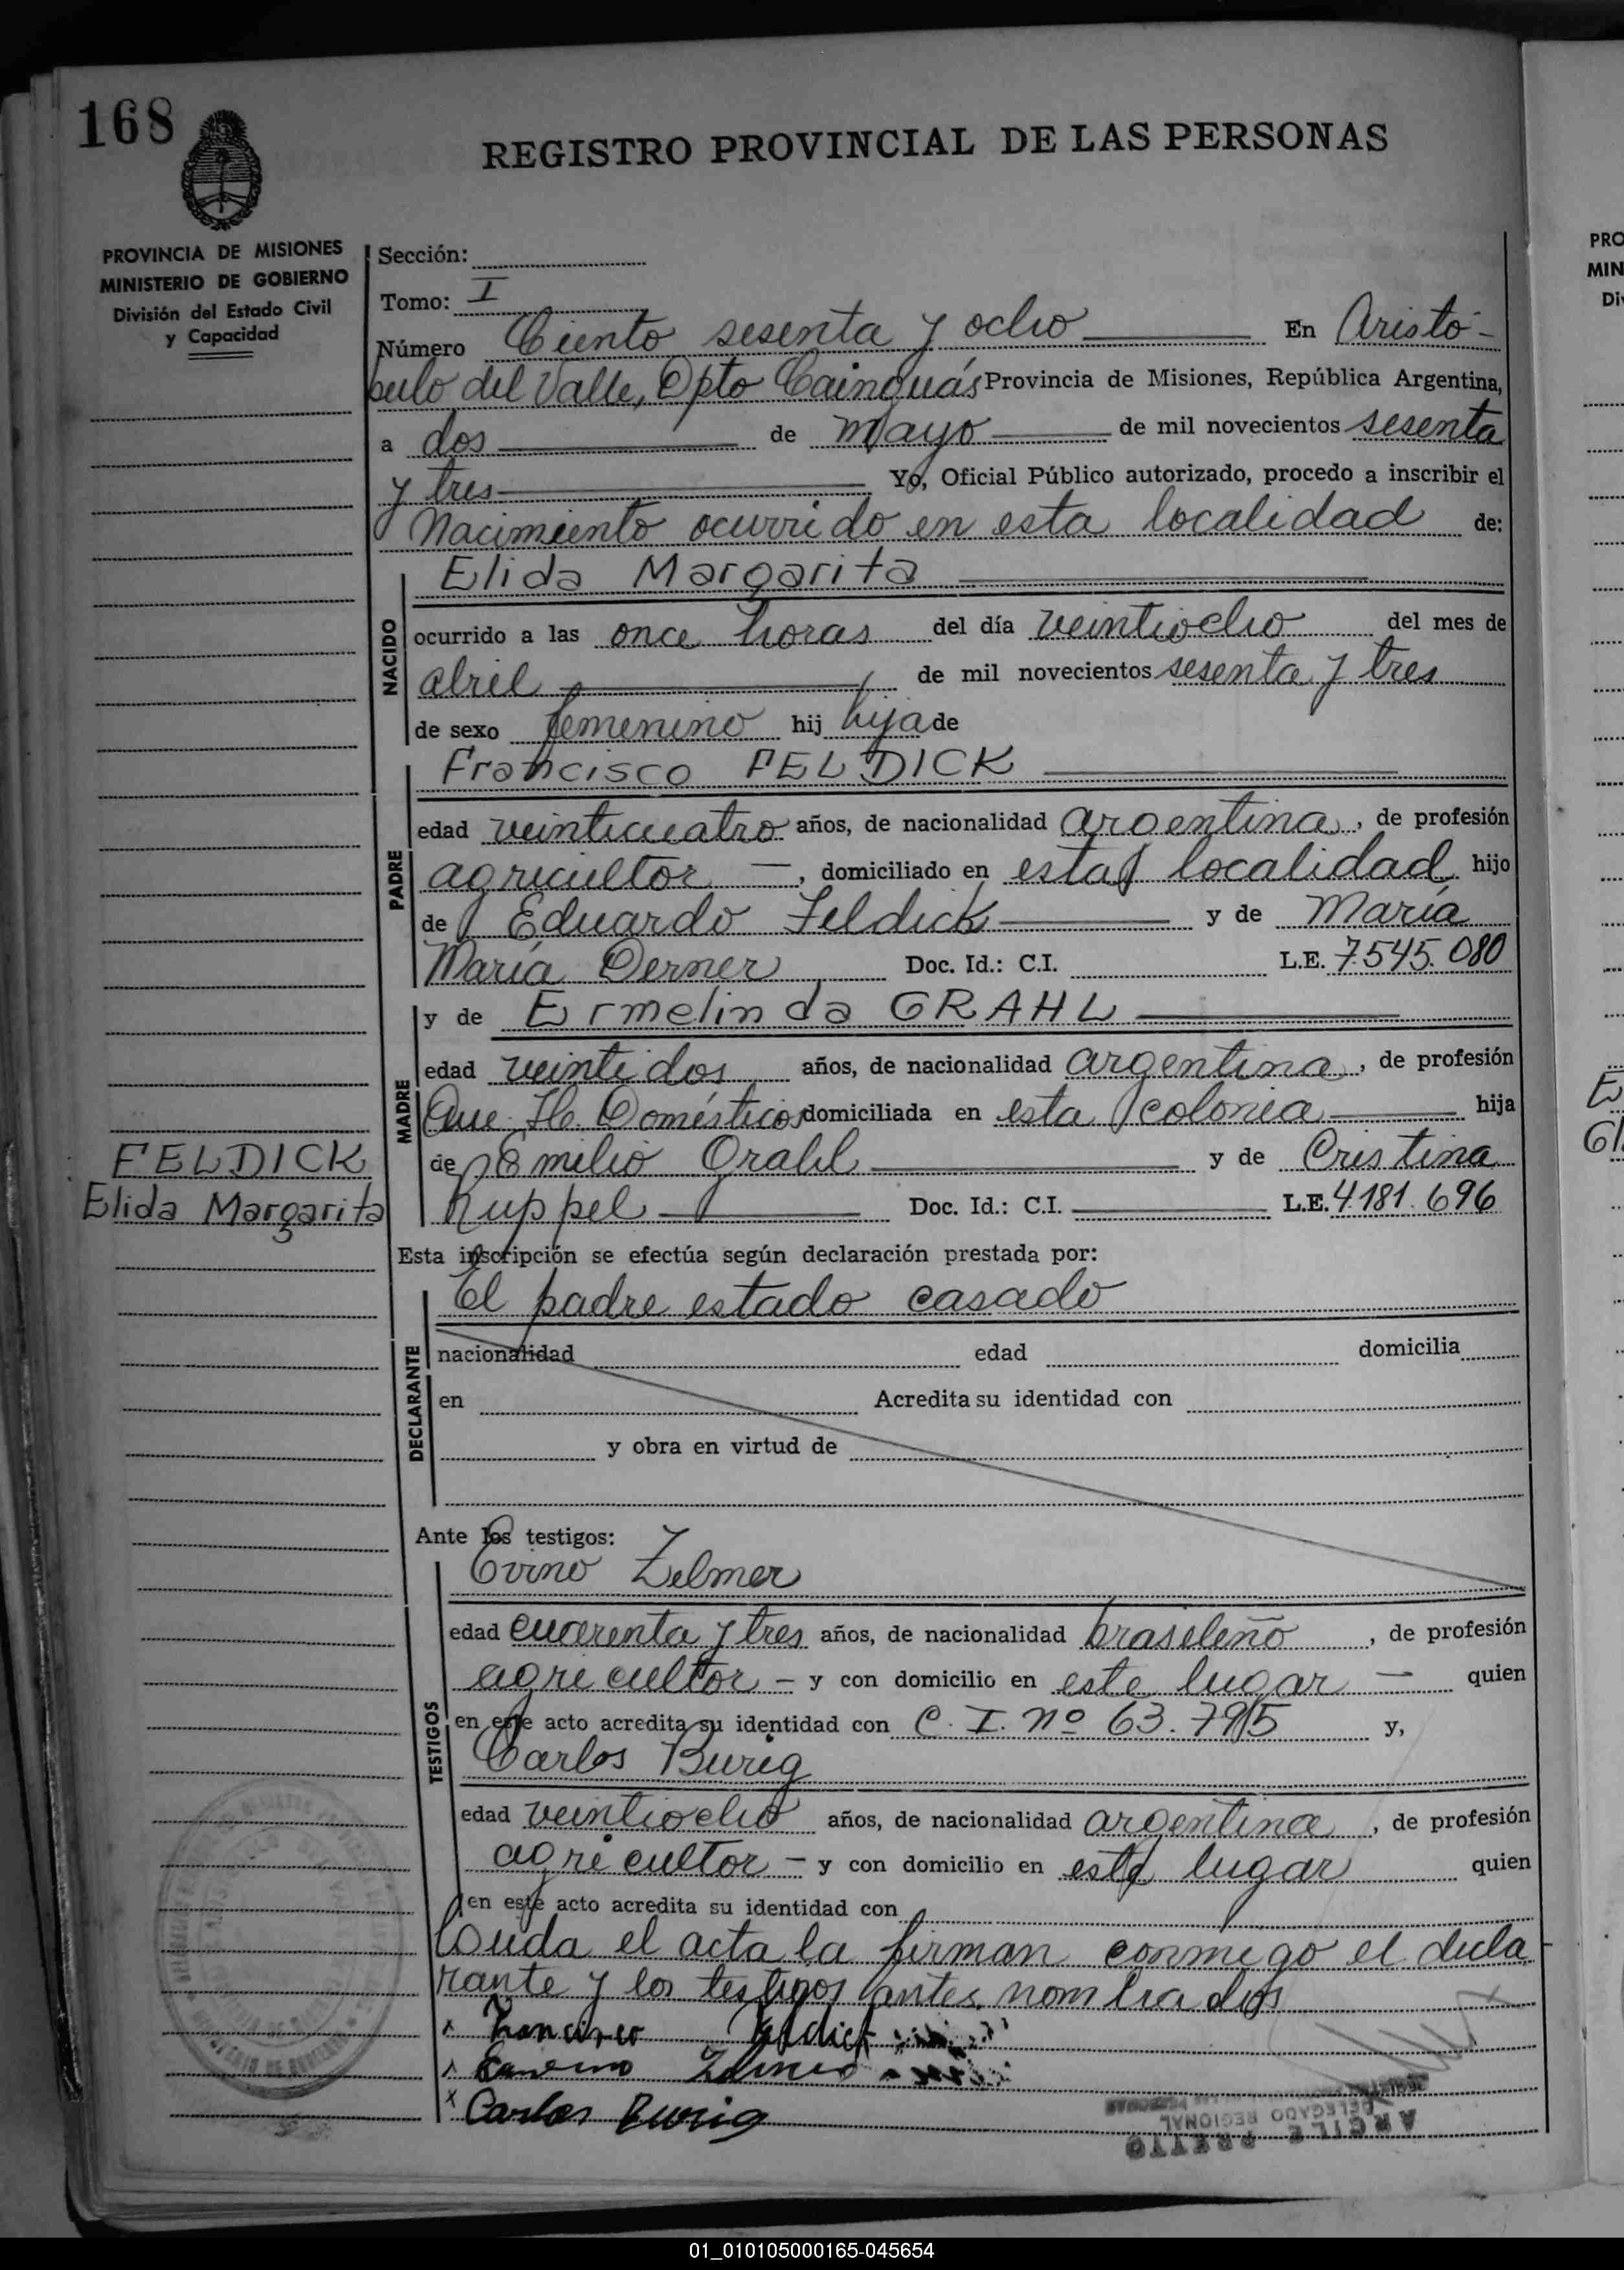 168
REGISTRO PROVINCIAL DE LAS PERSONAS
PROVINCIA DE MISIONES
MINISTERIO DE GOBIERNO
División del Estado Civil
y Capacidad
Sección:
Tomo: I
Número Ciento sesenta y ocho En Aristó-
bulo del Valle, Dpto Cainguás Provincia de Misiones, República Argentina,
a dos de Mayo de mil novecientos sesenta
y tres Yo, Oficial Público autorizado, procedo a inscribir el
Nacimiento ocurrido en esta localidad de:
NACIDO
Elida Margarita
ocurrido a las once horas del día veintiocho del mes de
abril de mil novecientos sesenta y tres
de sexo femenino hij hija de
PADRE
Francisco FELDICK
edad veinticuatro años, de nacionalidad argentina, de profesión
agricultor, domiciliado en esta localidad hijo
de Eduardo Feldick y de María
María Derner Doc. Id.: C.I. L.E. 7.545.080
MADRE
y de Ermelinda GRAHL
edad veintidos años, de nacionalidad argentina, de profesión
Que. H. Domésticos domiciliada en esta colonia hija
de Emilio Grahl y de Cristina
Ruppel Doc. Id.: C.I. L.E. 4.181.696
FELDICK
Elida Margarita
Esta inscripción se efectúa según declaración prestada por:
DECLARANTE
El padre estado casado
nacionalidad edad domicilia
en Acredita su identidad con
y obra en virtud de
Ante los testigos:
TESTIGOS
Ervino Zelmer
edad cuarenta y tres años, de nacionalidad brasileño, de profesión
agricultor - y con domicilio en este lugar — quien
en este acto acredita su identidad con C. I. nº 63.795 y,
Carlos Burig
edad veintiocho años, de nacionalidad argentina, de profesión
agricultor - y con domicilio en este lugar quien
en este acto acredita su identidad con
Leida el acta la firman conmigo el decla
rante y los testigos antes nombrados
x Francisco Feldick
x Zelmer
x Carlos Burig
DELEGADO REGIONAL
PRO
MIN
Di
E
Gl
01_010105000165-045654